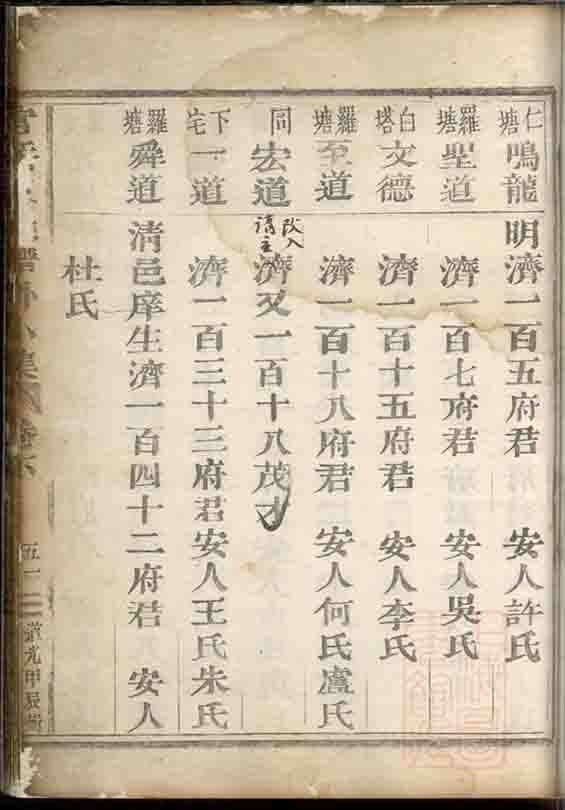 仁塘 鳴龍 明濟一百五府君 安人許氏
羅塘 聖道 濟一百七府君 安人吳氏
白塔 文德 濟一百十五府君 安人李氏
羅塘 至道 濟一百十八府君 安人何氏盧氏
同 宏道 改入 濟又一百十八茂才
下宅 一道 濟一百三十三府君 安人王氏朱氏
羅塘 舜道 清邑庠生濟一百四十二府君 安人
杜氏
五十二 道光甲辰